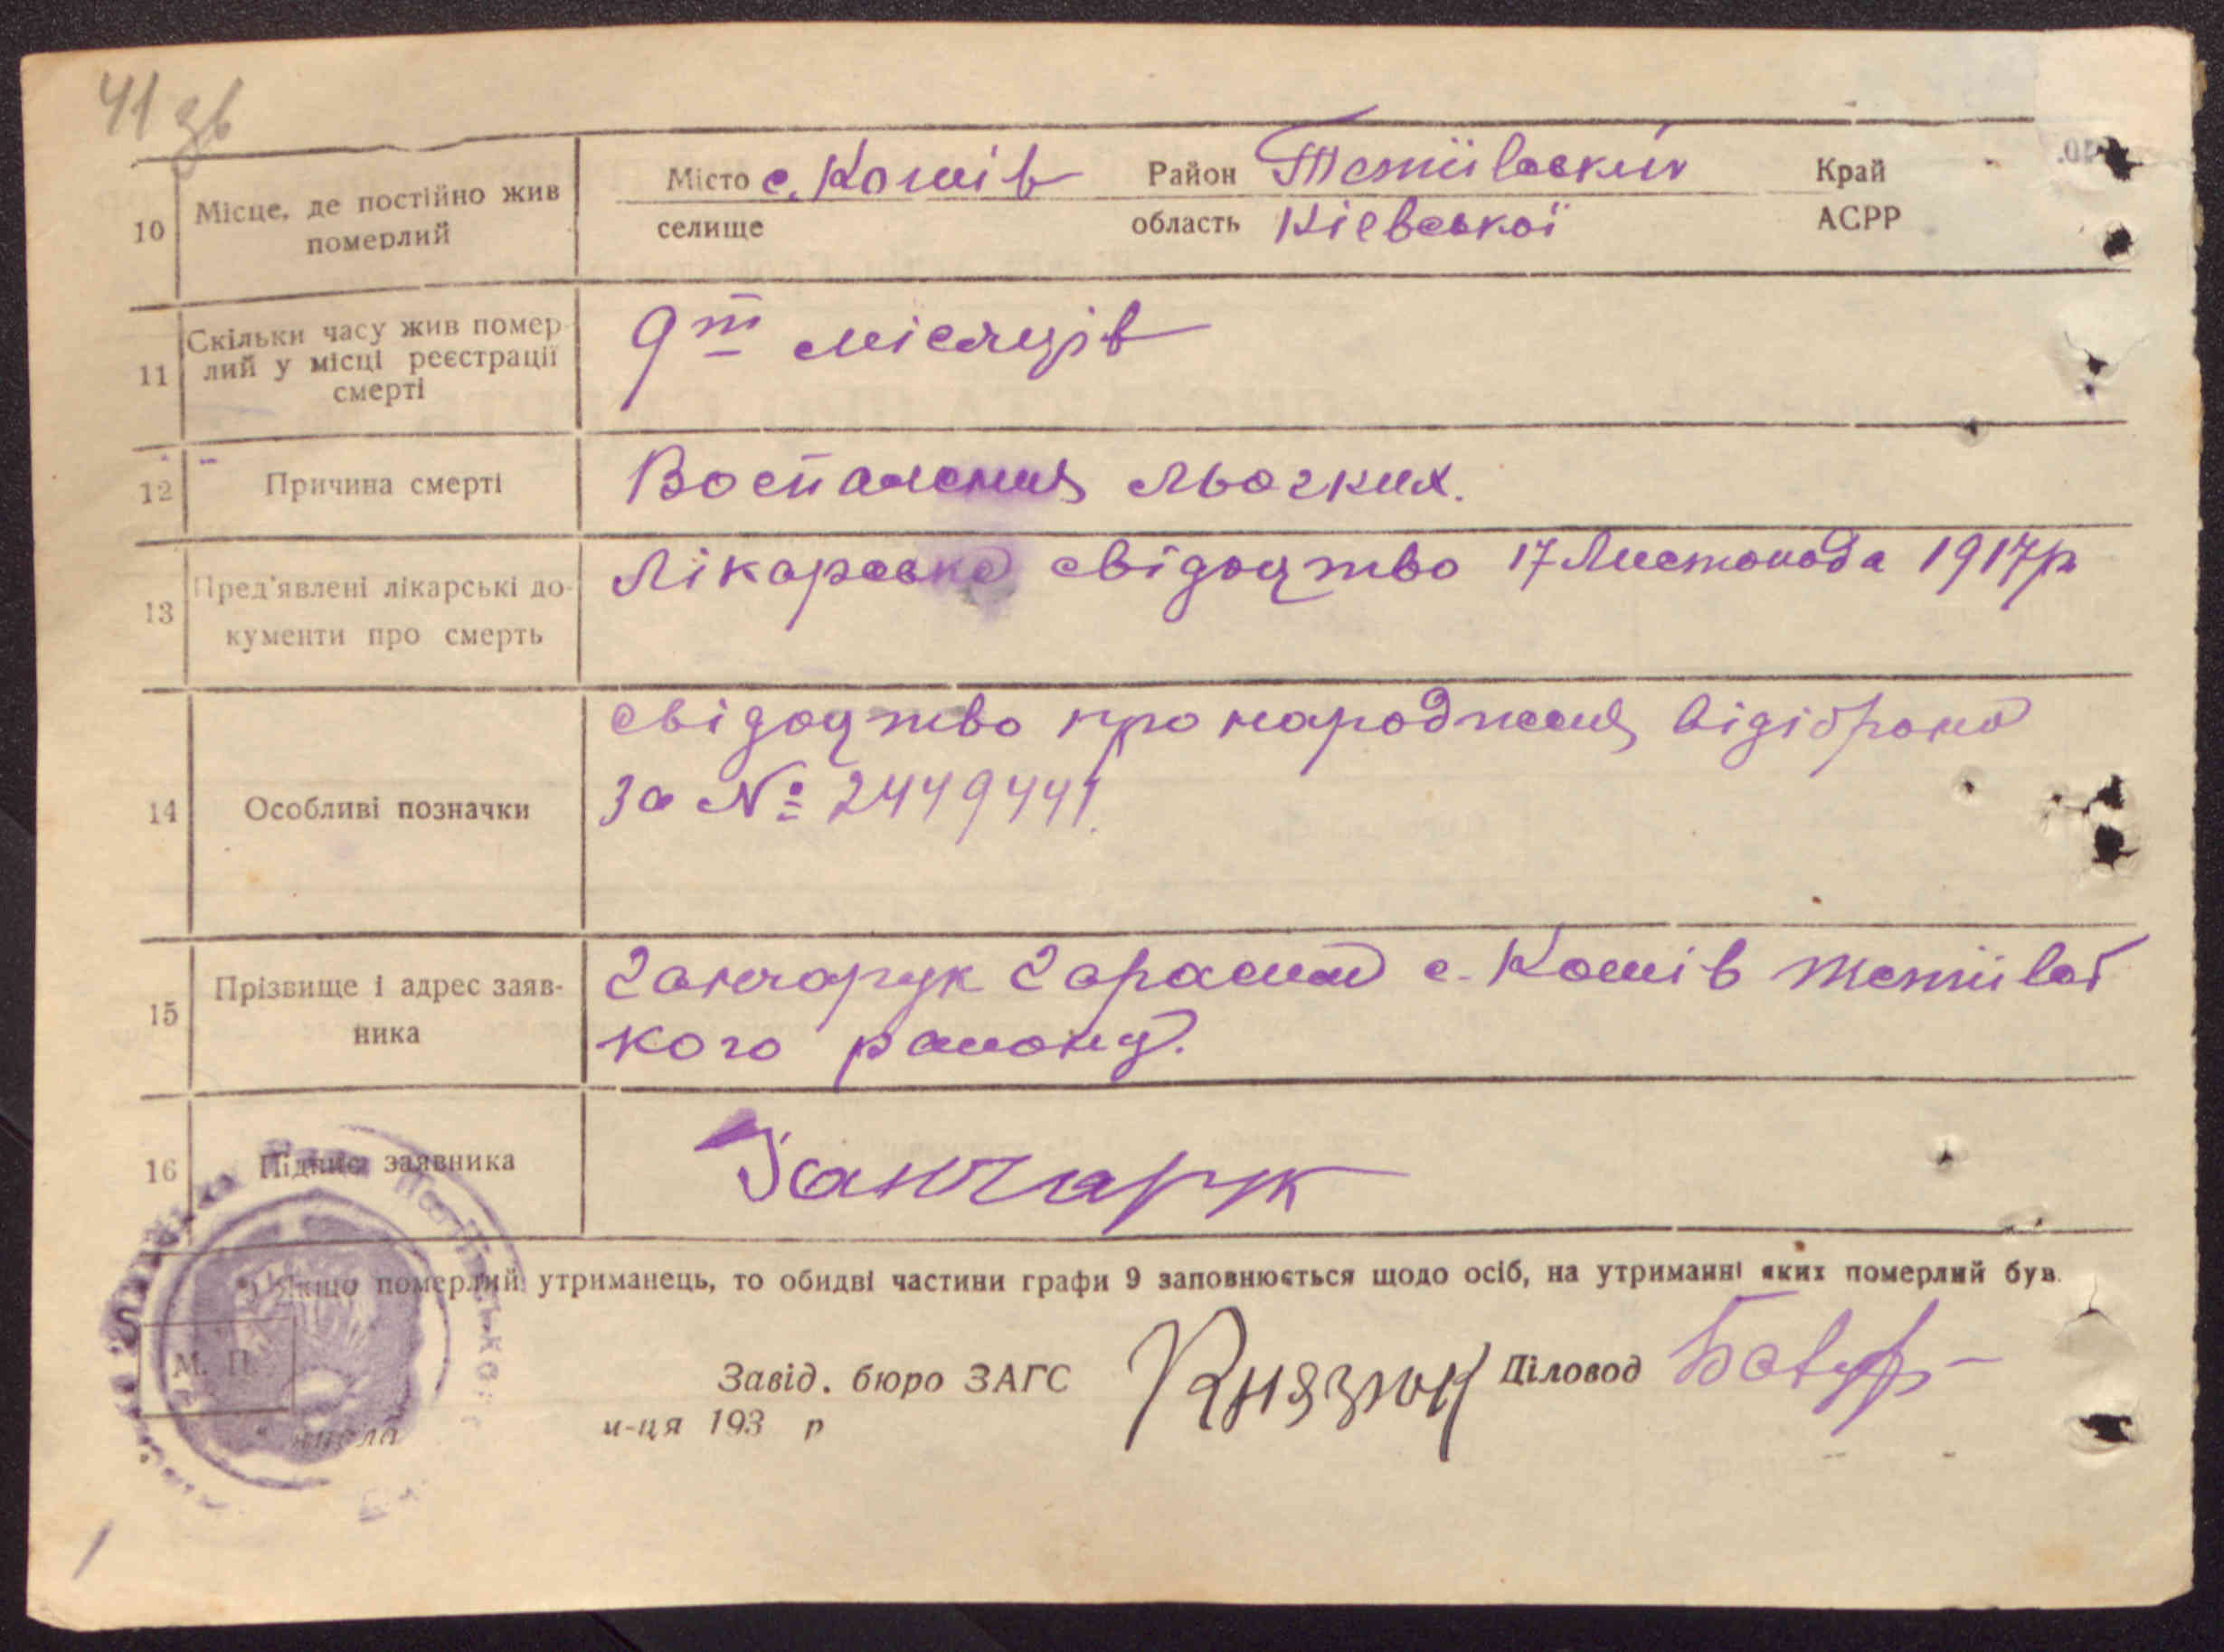 41 зв
10 Місце, де постійно жив померлий
Місто с. Кошів Район Тетіївський Край
селище область Кієвської АСРР
11 Скільки часу жив помер-
лий у місці реєстрації
смерті
9ть місяців
12 Причина смерті Воспаления льогких.
13 Пред'явлені лікарські до-
кументи про смерть
Лікарське свідоцтво 17 Листопада 1917р
14 Особливі позначки
свідоцтво про народження відібрано
за № 2449441.
15 Прізвище і адрес заяв-
ника
Ганчарук Гарасим с. Кошів Тетіївсь
кого району.
16 Підпис заявника Ганчарук
*) Якщо померлий утриманець, то обидві частини графи 9 заповнюється щодо осіб, на утриманні яких померлий був.
М. П.
Завід. бюро ЗАГС Князюк Діловод
" числа м-ця 193 р